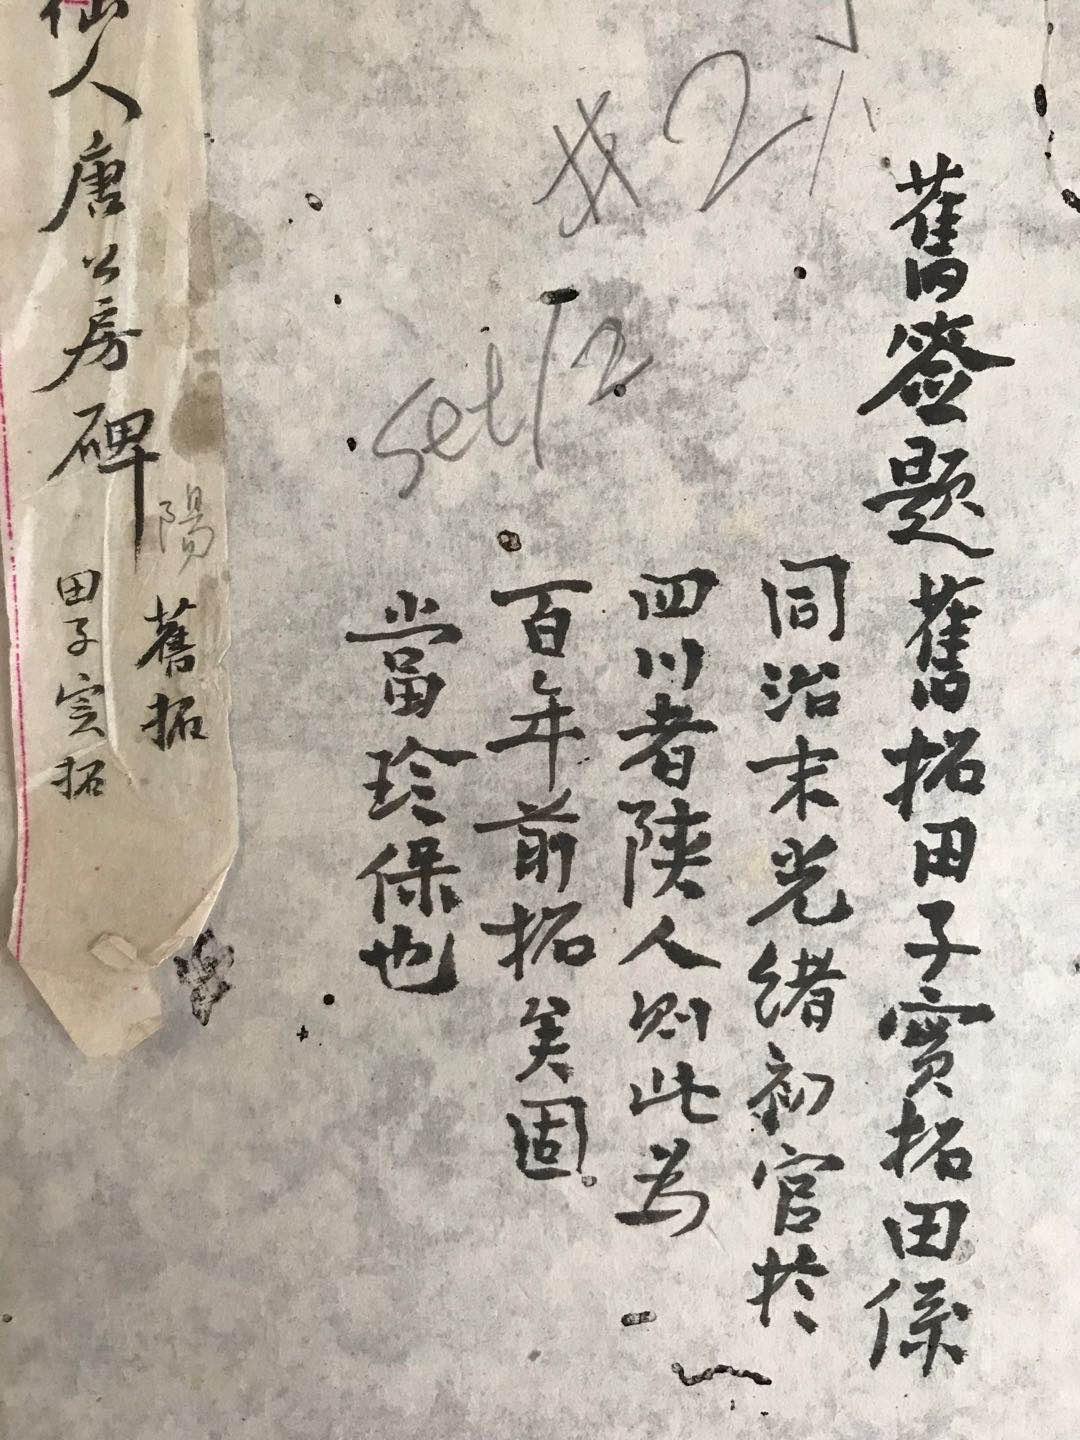 舊簽題舊拓田子實拓田係
同治末光緒初官於
四川者陝人則此為
百年前拓矣固
當珍保也
#2
set/2
仙人唐公房碑
陽
舊拓
田子实拓